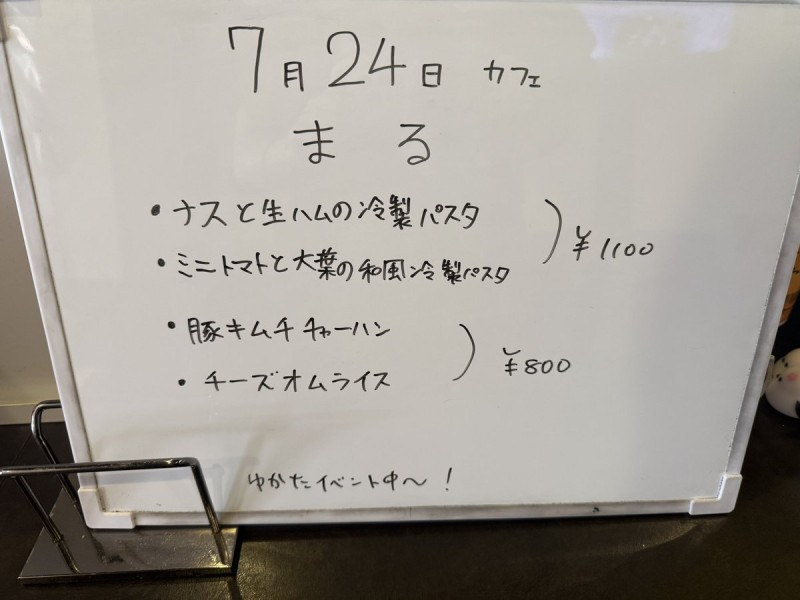 7月24日 カフェ
まる
・ナスと生ハムの冷製パスタ
・ミニトマトと大葉の和風冷製パスタ
¥1100
・豚キムチチャーハン
・チーズオムライス
¥800
ゆかたイベント中〜！